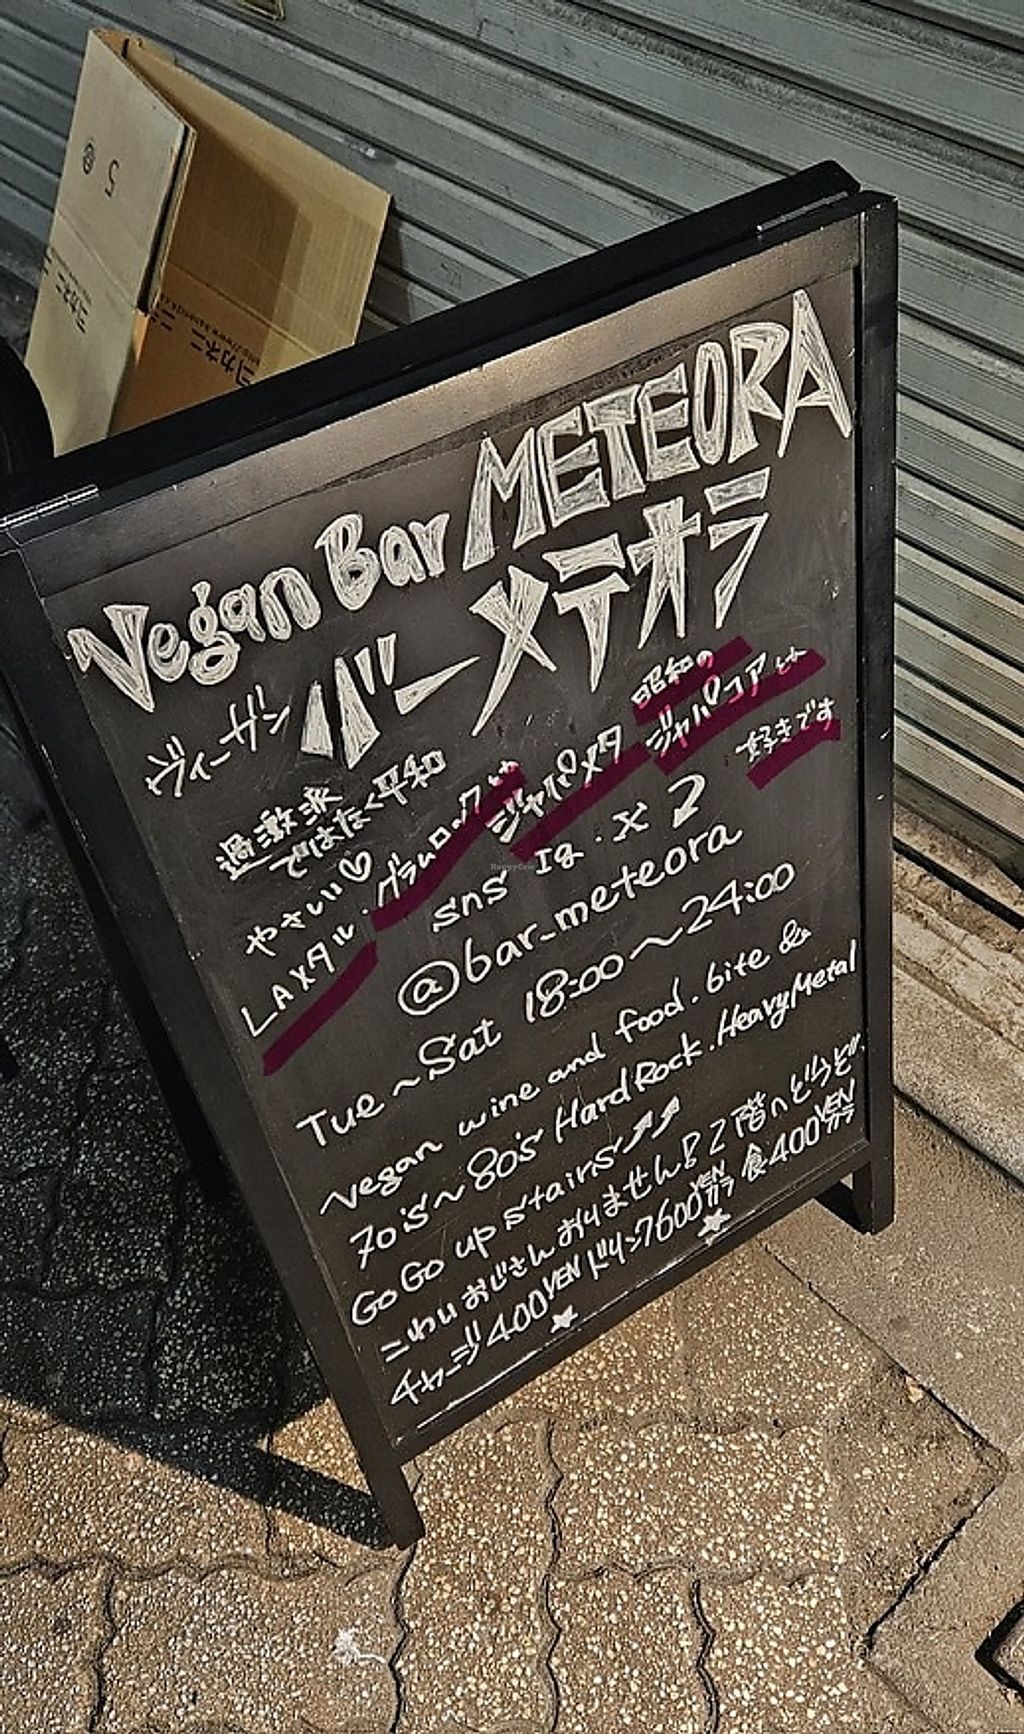 Vegan Bar METEORA
ヴィーガン バーメテオラ
過激派
ではなく平和
やさい♡
LAメタル.グラムロックや
ジャパメタ
昭和の
ジャパコアとか
好きです
sns Ig. X 2
@bar_meteora
Tue~Sat 18:00~24:00
vegan wine and food. bite &
70's~80's HardRock. HeavyMetal
GoGo up stairs
こわいおじさんおりません!2階へどうぞ
チャージ400YEN ドリンク600YENカラ 食400YENカラ
ヨカネニ
ヨカネニ
5
HappyCow